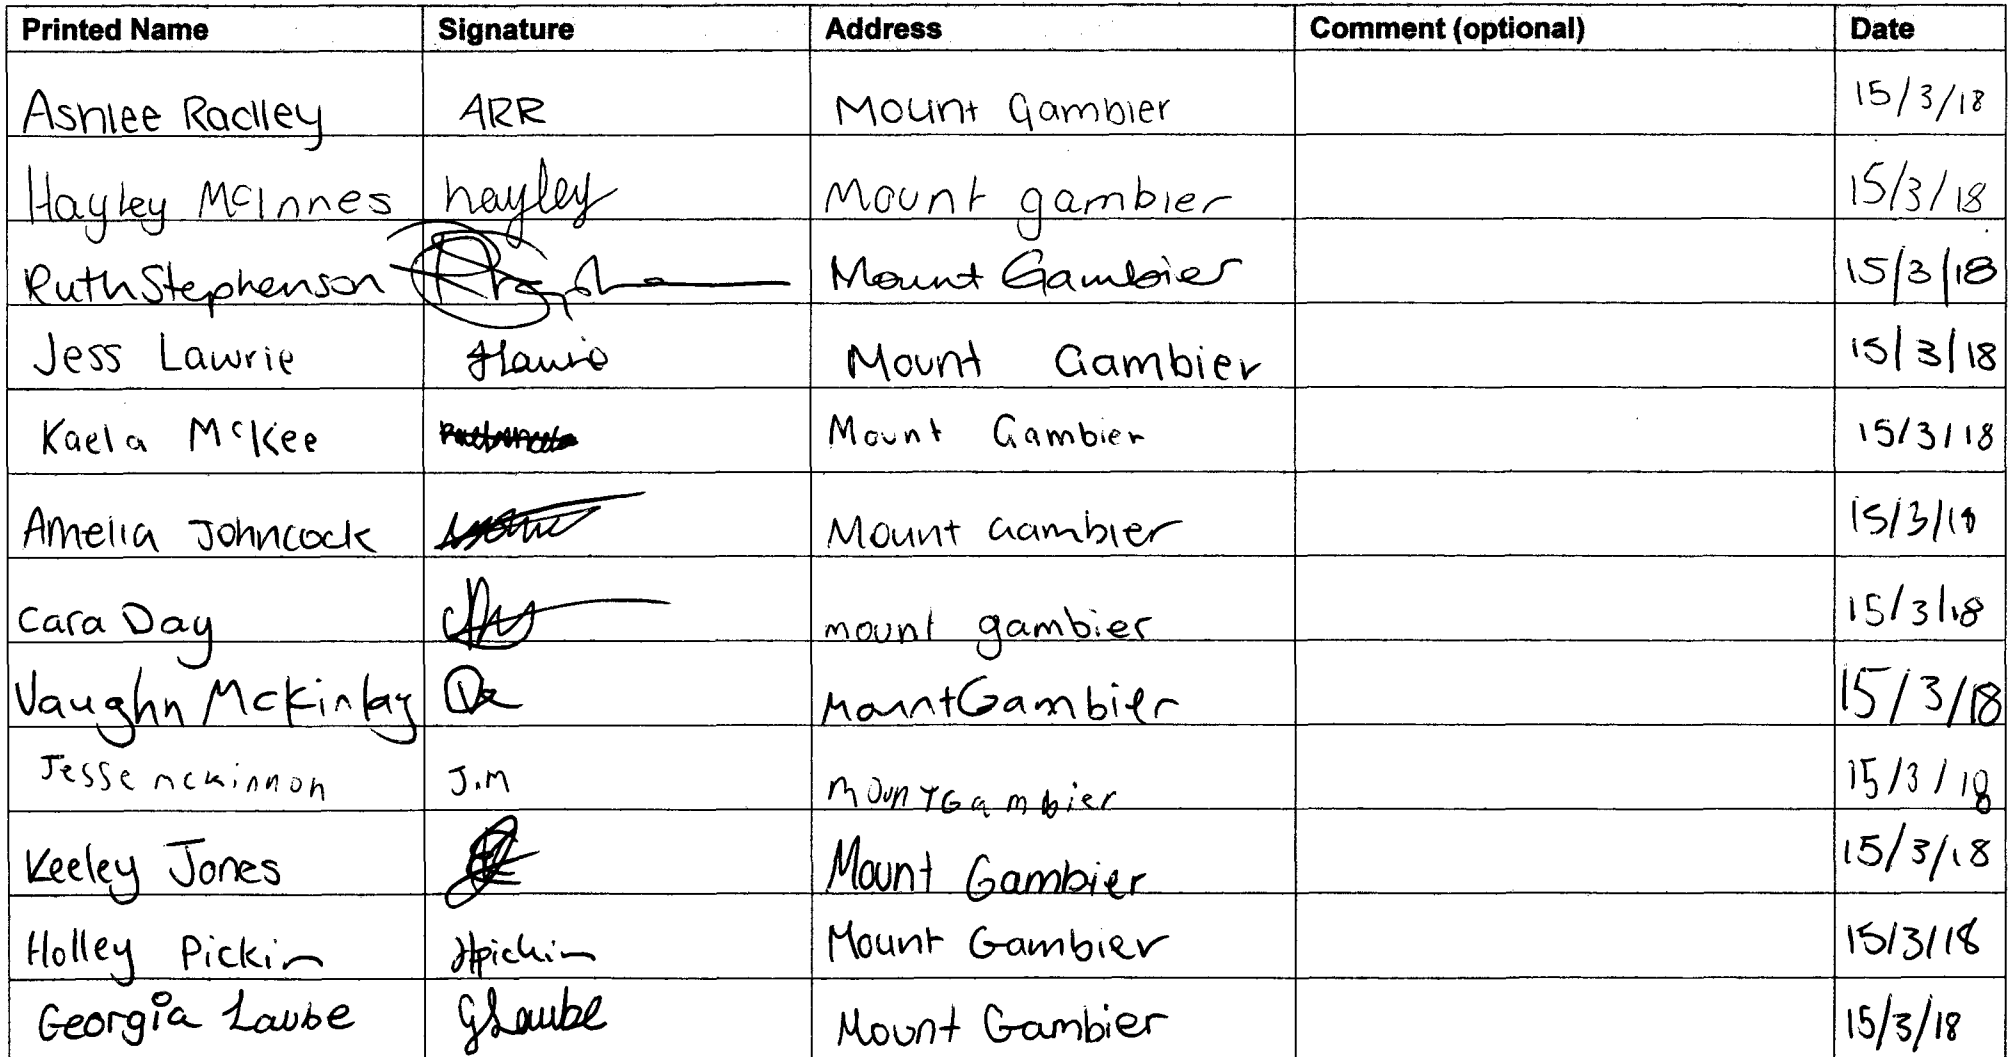 Printed Name Signature Address Comment (optional) Date
Ashlee Radley ARR Mount Gambier 15/3/18
Hayley McInnes hayley Mount gambier 15/3/18
Ruth Stephenson Mount Gambier 15/3/18
Jess Lawrie JLawrie Mount Gambier 15/3/18
Kaela McKee Mount Gambier 15/3/18
Amelia Johncock Mount Gambier 15/3/18
Cara Day mount gambier 15/3/18
Vaughn McKinlay Mount Gambier 15/3/18
Jesse mckinnon J.M MounT Gambier 15/3/18
Keeley Jones Mount Gambier 15/3/18
Holley Pickin Hpickin Mount Gambier 15/3/18
Georgia Laube GLaube Mount Gambier 15/3/18